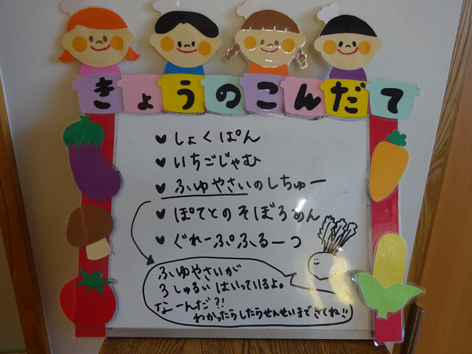 きょうのこんだて
♥しょくぱん
♥いちごじゃむ
♥ふゆやさいのしちゅー
♥ぽてとのそぼろめん
♥ぐれーぷふるーつ
ふゆやさいが
3しゅるいはいっているよ。
なーんだ?!
わかったらしたらせんせいまできてね!!